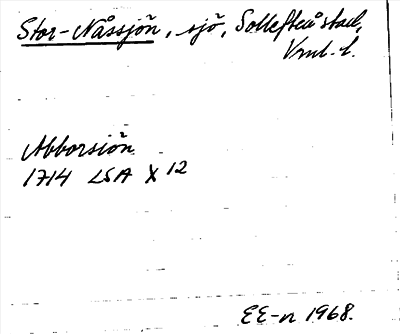 Stor-Nåssjön, sjö, Sollefteå stad,
Vnrl. l.
Abborsiön
1714 LSA X 12
EE-n 1968.